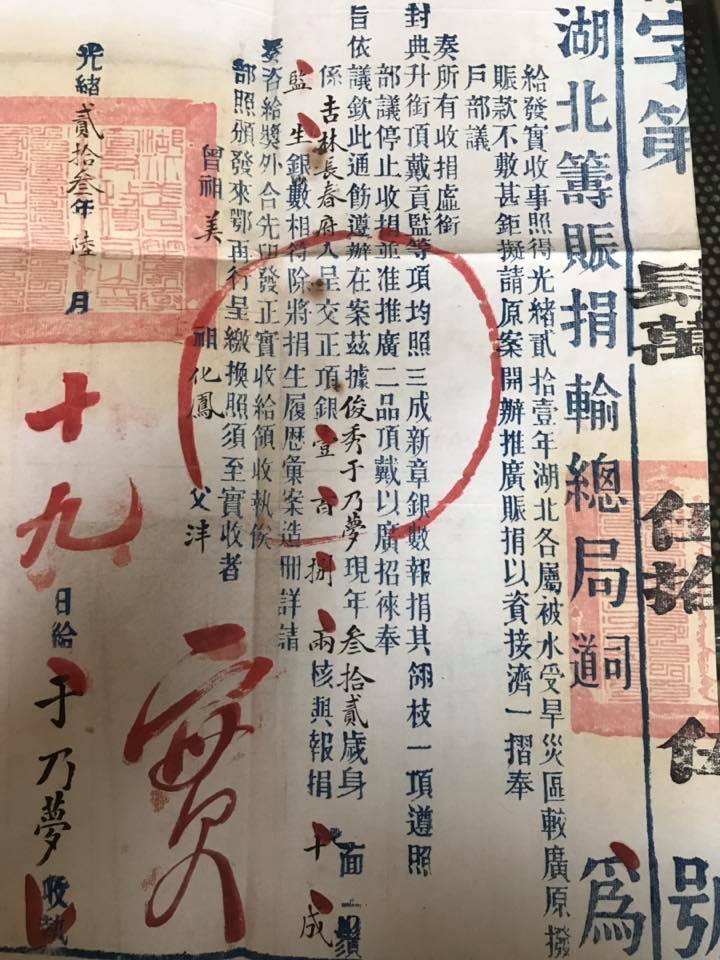 字第長萬伍拾伍號
湖北籌賑捐輸總局司道
為
給發實收事照得光緒貳拾壹年湖北各屬被水受旱災區較廣原撥
賑款不敷甚鉅擬請原案開辦推廣賑捐以資接濟一摺奉
戶部議
奏所有收捐虛銜
封典升銜頂戴貢監等項均照三成新章銀數報捐其翎枝一項遵照
部議停止收捐並准推廣二品頂戴以廣招徠奉
旨依議欽此通飭遵辦在案茲據俊秀于乃夢現年叁拾貳歲身面鬚
係吉林長春府人呈交正項銀壹百捌兩核與報捐十成
監生銀數相符除將捐生履歷彙案造冊詳請
奏咨給獎外合先印發正實收給領收執俟
部照頒發來鄂再行呈繳換照須至實收者
曾祖美
祖化鳳
父沣
光緒貳拾叁年陸月十九日給于乃夢收執
實